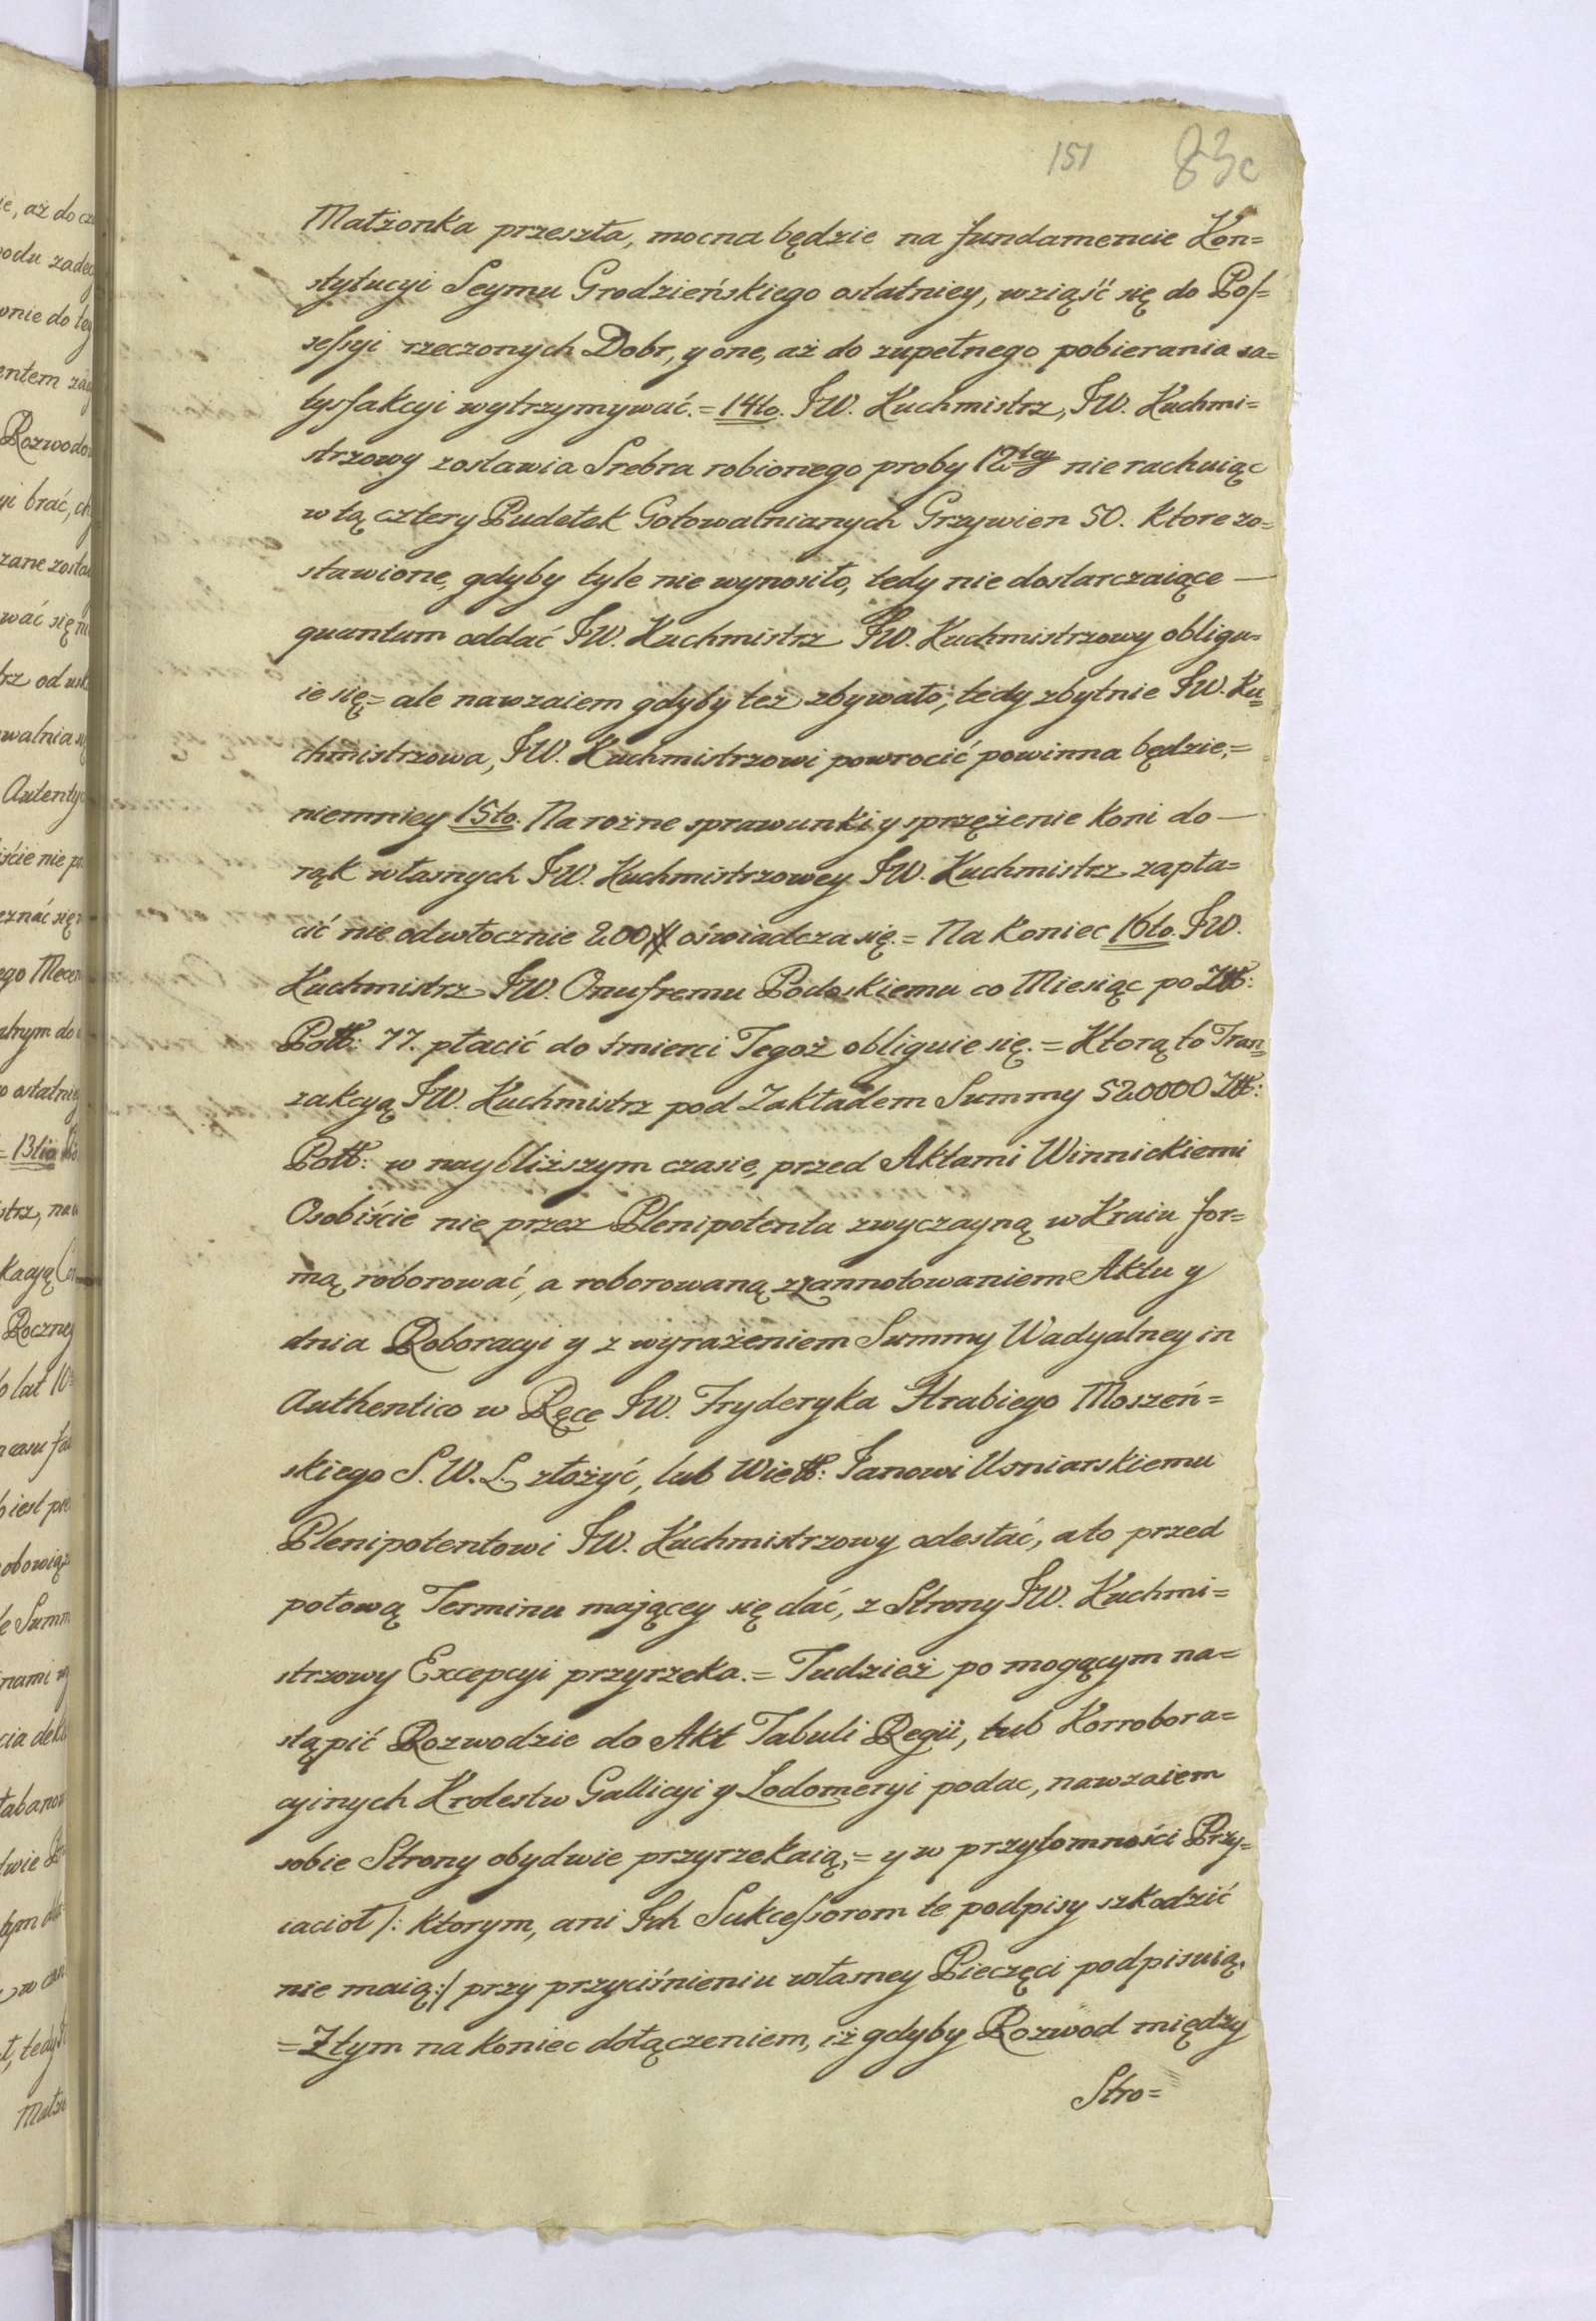 151 83c
Małżonka przeszła, mocna będzie na fundamencie Kon=
stytucyi Seymu Grodzieńskiego ostatniey, wziąść się do Pos=
sessyi rzeczonych Dobr, y one, aż do zupełnego pobierania sa=
tysfakcyi wytrzymywać. = 14to. JW. Kuchmistrz, JW. Kuchmi=
strzowy zostawia Srebra robionego proby 12tey nie rachuiąc
w tą cztery Pudełek Gotowalnianych Grzywien 50. które zo=
stawione, gdyby tyle nie wynosiło, tedy nie dostarczaiące —
quantum oddać JW. Kuchmistrz JW. Kuchmistrzowy obligu=
ie się = ale nawzaiem gdyby też zbywało, tedy zbytnie JW. Ku=
chmistrzowa, JW. Kuchmistrzowi powrocić powinna będzie, =
niemniey 15to. Na rożne sprawunki y sprzężenie koni do —
rąk własnych JW. Kuchmistrzowey JW. Kuchmistrz zapła=
cić nie odwłocznie 200 # oświadcza się. = Na koniec 16to. JW.
Kuchmistrz JW. Onufremu Podoskiemu co Miesiąc po Zł:
Poll: 77. płacić do śmierci Tegoż obliguie się. = Ktorą to Tran=
zakcyą JW. Kuchmistrz pod Zakładem Summy 520000 Zł:
Poll: w naybliższym czasie, przed Aktami Winnickiemi
Osobiście nie przez Plenipotenta zwyczayną w Kraiu for=
mą roborować, a roborowaną z zannotowaniem Aktu y
dnia Roboracyi y z wyrażeniem Summy Wadyalney in
Authentico w Ręce JW. Fryderyka Hrabiego Moszeń=
skiego S. W. L. złożyć, lub Wiell: Janowi Usniarskiemu
Plenipotentowi JW. Kuchmistrzowy odesłać, a to przed
połową Terminu mającey się dać, z Strony JW. Kuchmi=
strzowy Excepcyi przyrzeka. = Tudzież po mogącym na=
stąpić Rozwodzie do Akt Tabuli Regii, lub Korrobora=
cyinych Krolestw Gallicyi y Lodomeryi podac, nawzaiem
sobie Strony obydwie przyrzekaią, = y w przytomności Przy=
iacioł /: ktorym, ani Ich Sukcessorom te podpisy szkodzić
nie maią :/ przy przyciśnieniu własney Pieczęci podpisuią.
= Z tym na koniec dołączeniem, iż gdyby Rozwod między
Stro=